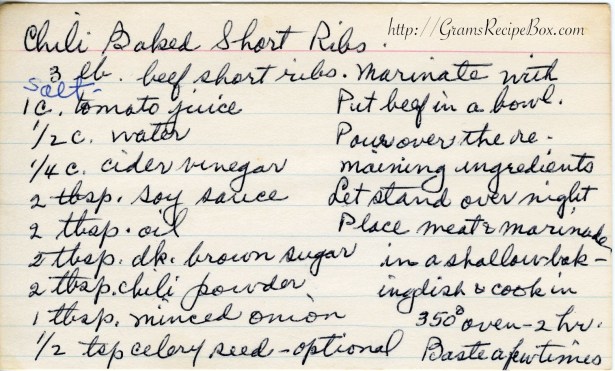 Chili Baked Short Ribs.
http://GramsRecipeBox.com
3 lb. beef short ribs. Marinate with
Salt-
1 c. tomato juice
1/2 c. water
1/4 c. cider vinegar
2 tbsp. soy sauce
2 tbsp. oil
2 tbsp. dk. brown sugar
2 tbsp. chili powder
1 tbsp. minced onion
1/2 tsp celery seed - optional
Put beef in a bowl.
Pour over the re-
maining ingredients
Let stand over night
Place meat & marinade
in a shallow bak-
ing dish & cook in
350° oven - 2 hr.
Baste a few times